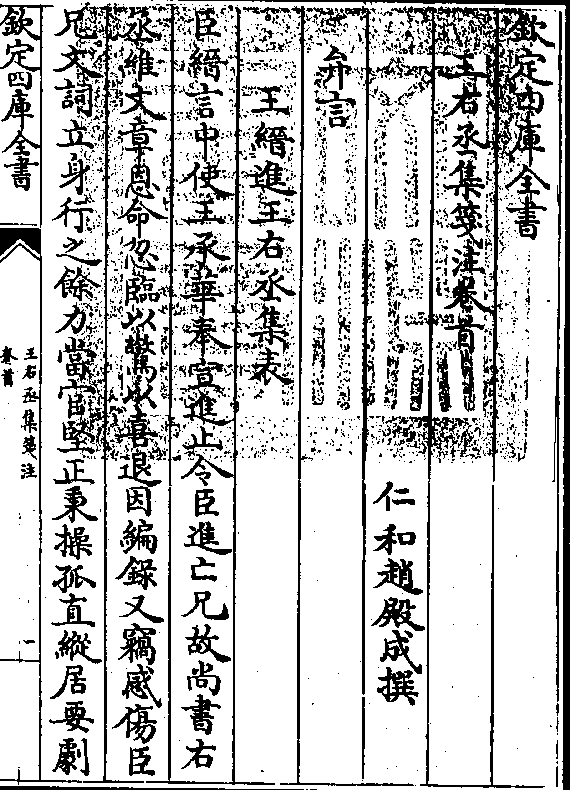 欽定四庫全書
王右丞集箋注卷首
仁和趙殿成撰
弁言
王縉進王右丞集表
臣縉言中使王承華奉宣進止令臣進亡兄故尚書右
丞維文章恩命忽臨以驚以喜退因編錄又竊感傷臣
兄文詞立身行之餘力當官堅正秉操孤直縱居要劇
欽定四庫全書
王右丞集箋注
卷首
一